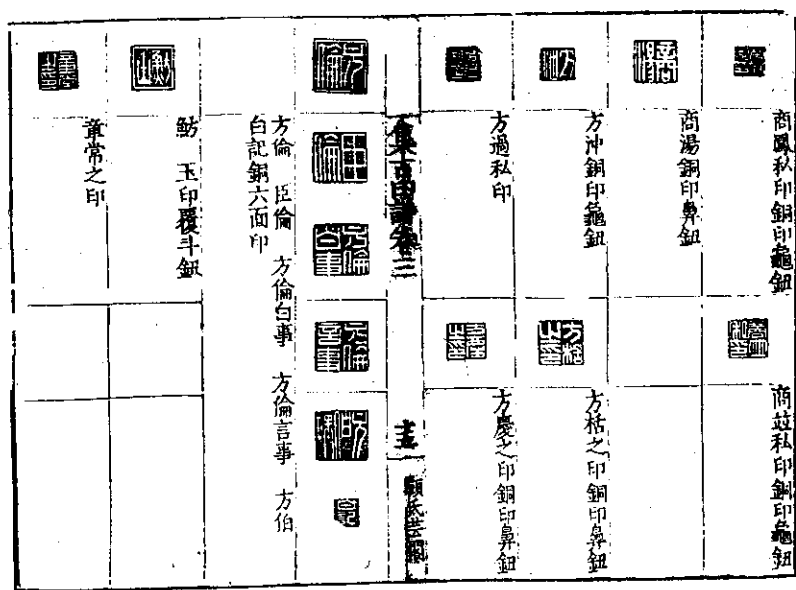 商鳳私印銅印龜鈕
商竝私印銅印龜鈕
商湯銅印鼻鈕
方沖銅印龜鈕
方栝之印銅印鼻鈕
方過私印
方慶之印銅印鼻鈕
集古印譜卷三
顧氏芸閣
方倫　臣倫　方倫白事　方倫言事　方伯
白記銅六面印
鮎　玉印覆斗鈕
章常之印